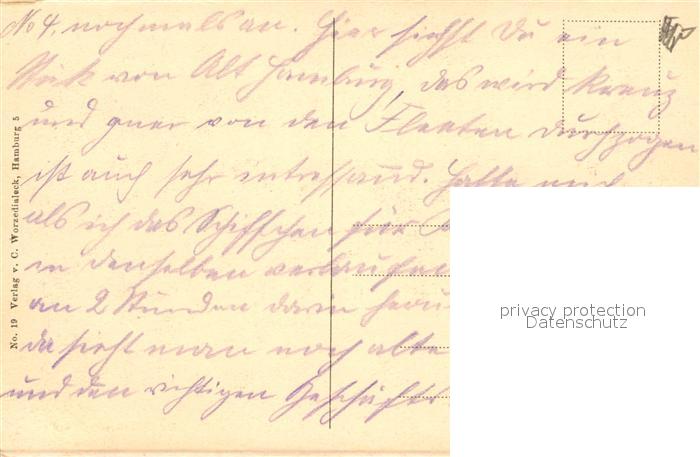 No 4, nochmals an. Hier siehst Du ein
Stück von Alt Hamburg, das wird kreuz
und quer von den Fleeten durchzogen
ist auch sehr intressand. Hatte mich
als ich das Schiffchen für
in denselben verlaufen
an 2 Stunden darin
da sieht man noch alte
und den richtigen Geschäfts
No. 19 Verlag v. C. Worzedialeck, Hamburg 5
privacy protection
Datenschutz